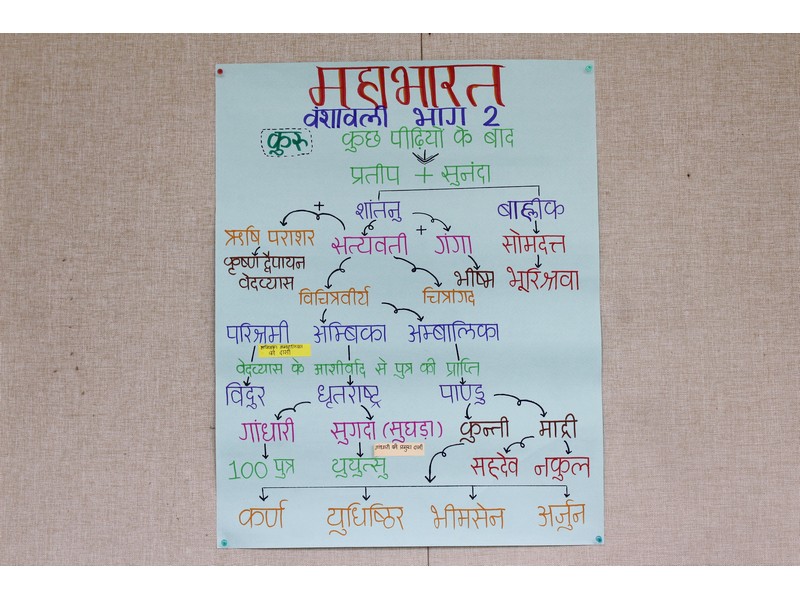 महाभारत
वंशावली भाग 2
कुरु कुछ पीढ़ियों के बाद
प्रतीप + सुनंदा
शांतनु बाह्लीक
+
ऋषि पराशर सत्यवती + गंगा सोमदत्त
कृष्ण द्वैपायन वेदव्यास
भीष्म भूरिश्रवा
विचित्रवीर्य चित्रांगद
परिश्रमी अम्बिका अम्बालिका
की दासी
वेदव्यास के आशीर्वाद से पुत्र की प्राप्ति
विदुर धृतराष्ट्र पाण्डु
गांधारी सुगदा (सुघड़ा) कुन्ती माद्री
गांधारी की प्रमुख दासी
100 पुत्र युयुत्सु सहदेव नकुल
कर्ण युधिष्ठिर भीमसेन अर्जुन